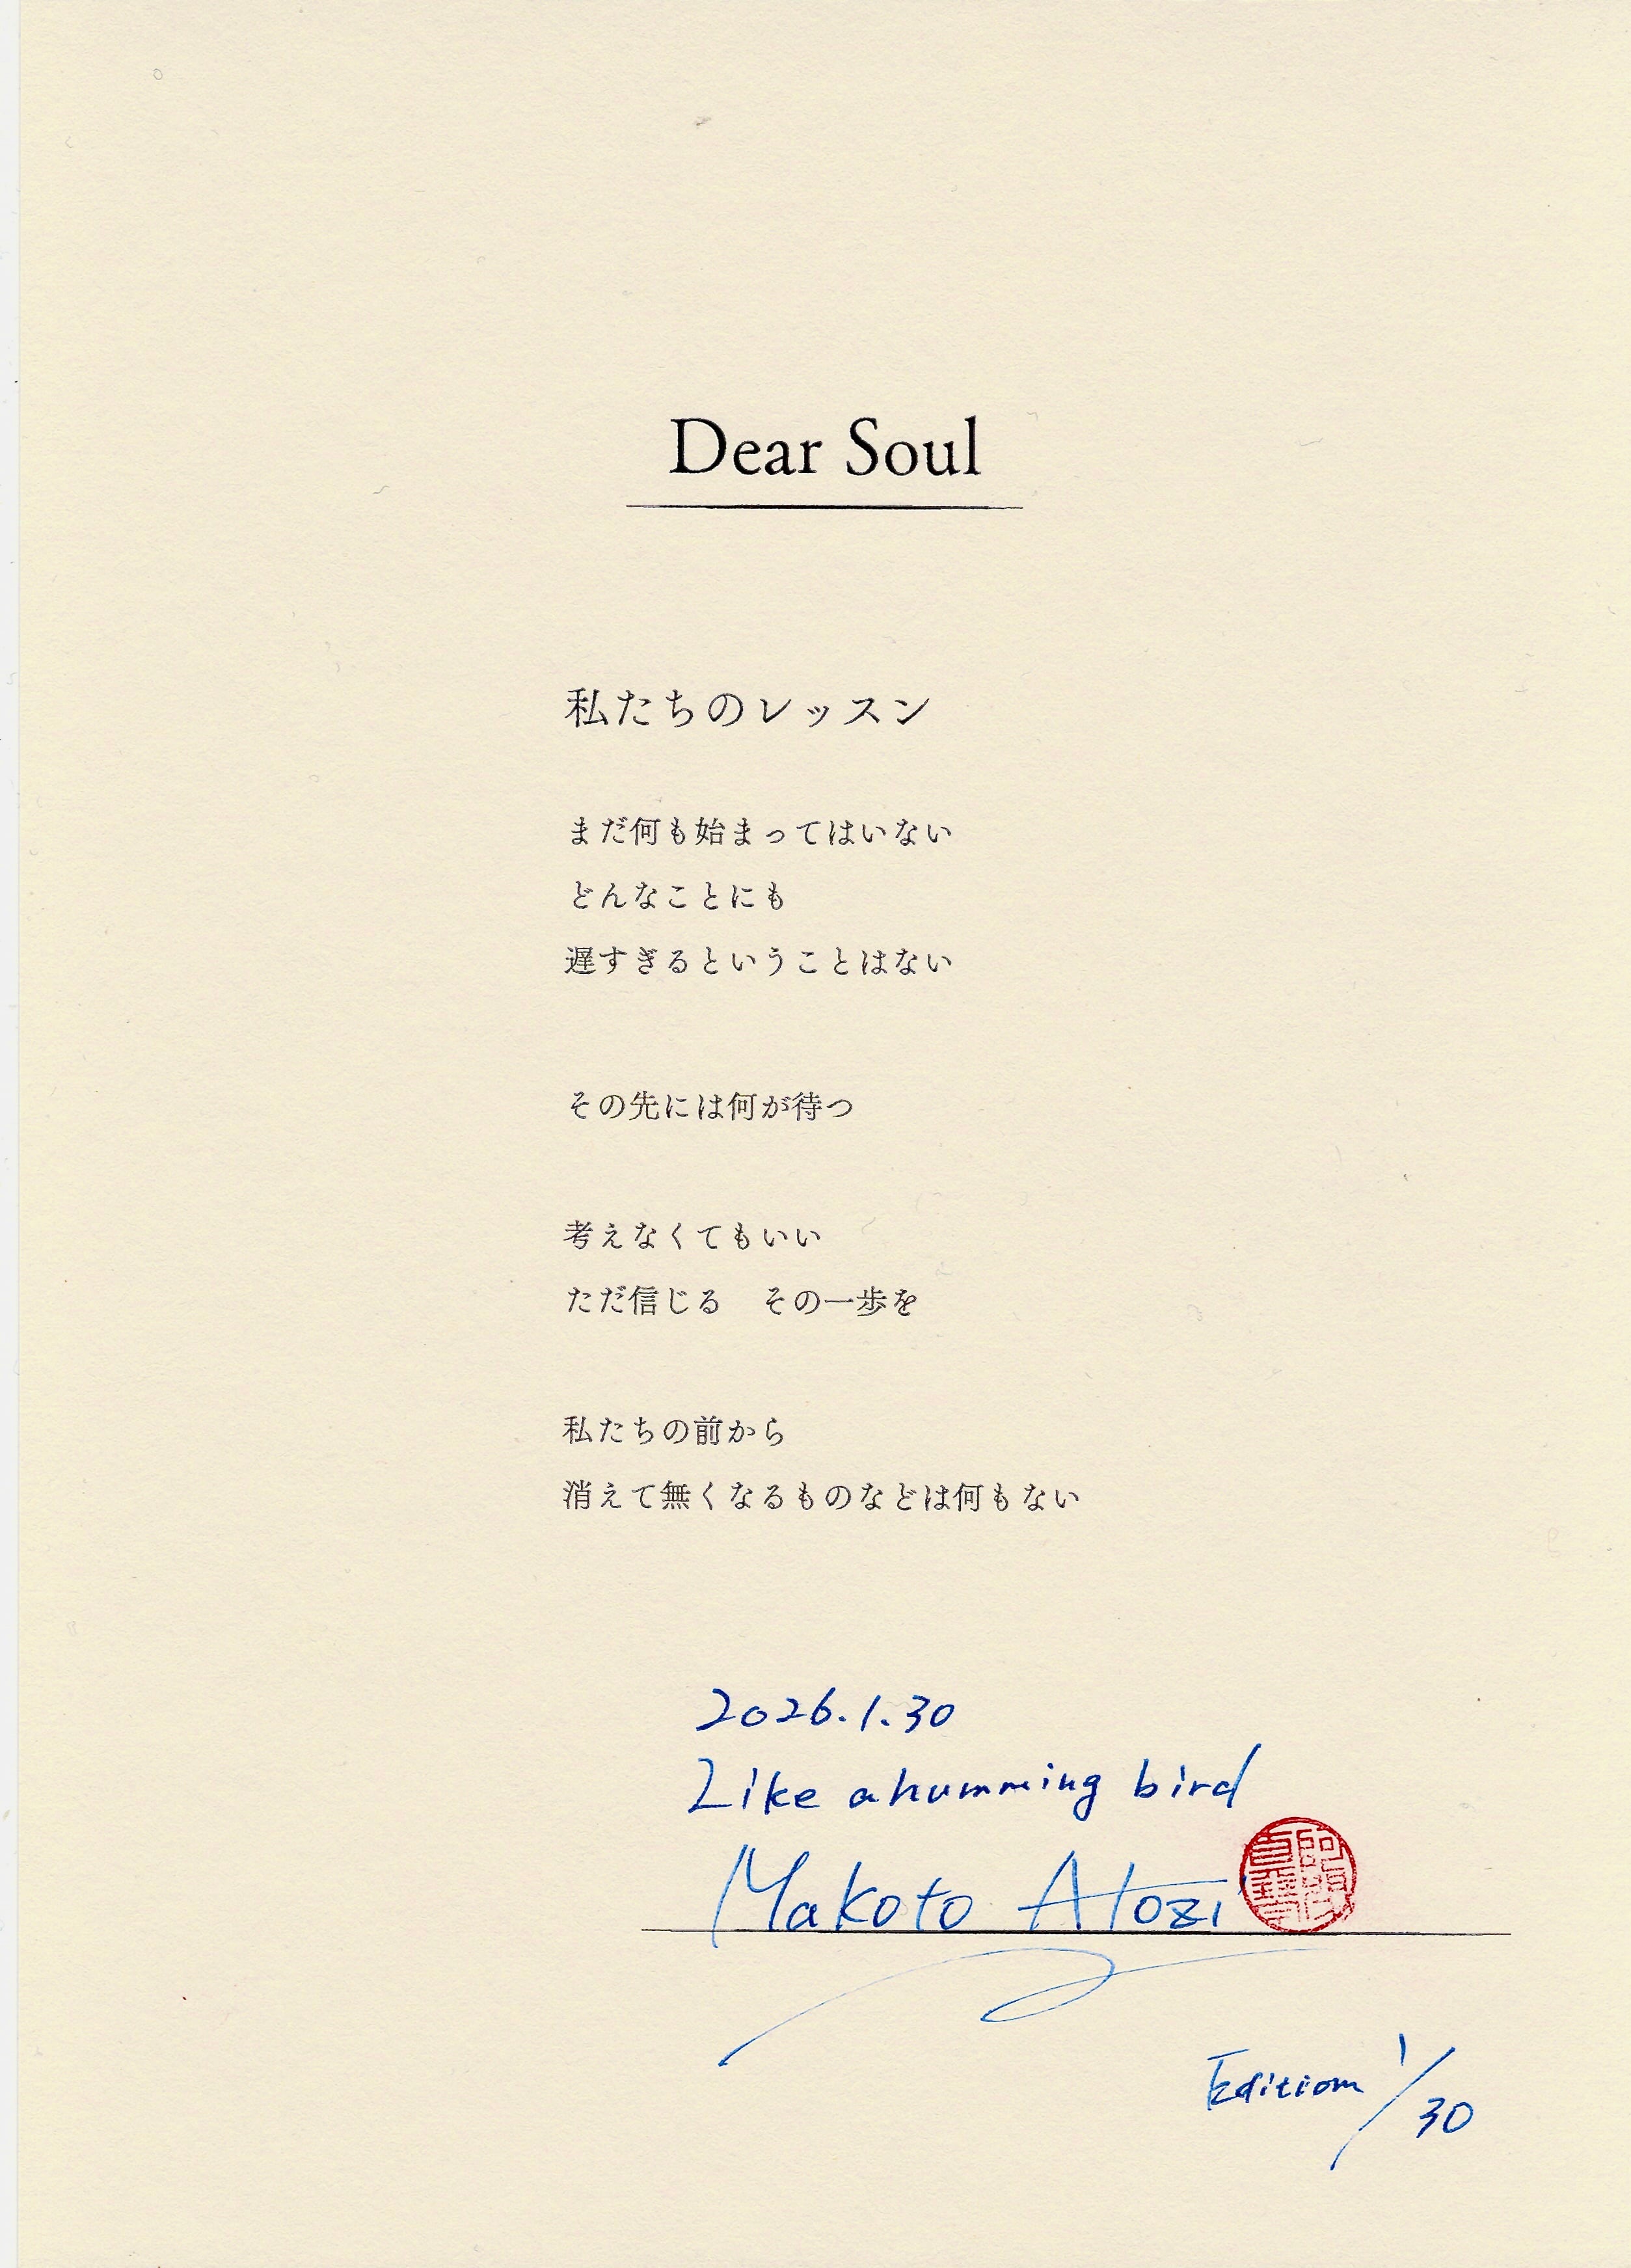 Dear Soul
私たちのレッスン
まだ何も始まってはいない
どんなことにも
遅すぎるということはない
その先には何が待つ
考えなくてもいい
ただ信じる　その一歩を
私たちの前から
消えて無くなるものなどは何もない
2026.1.30
Like a humming bird
Makoto Atozi
Edition 1/30